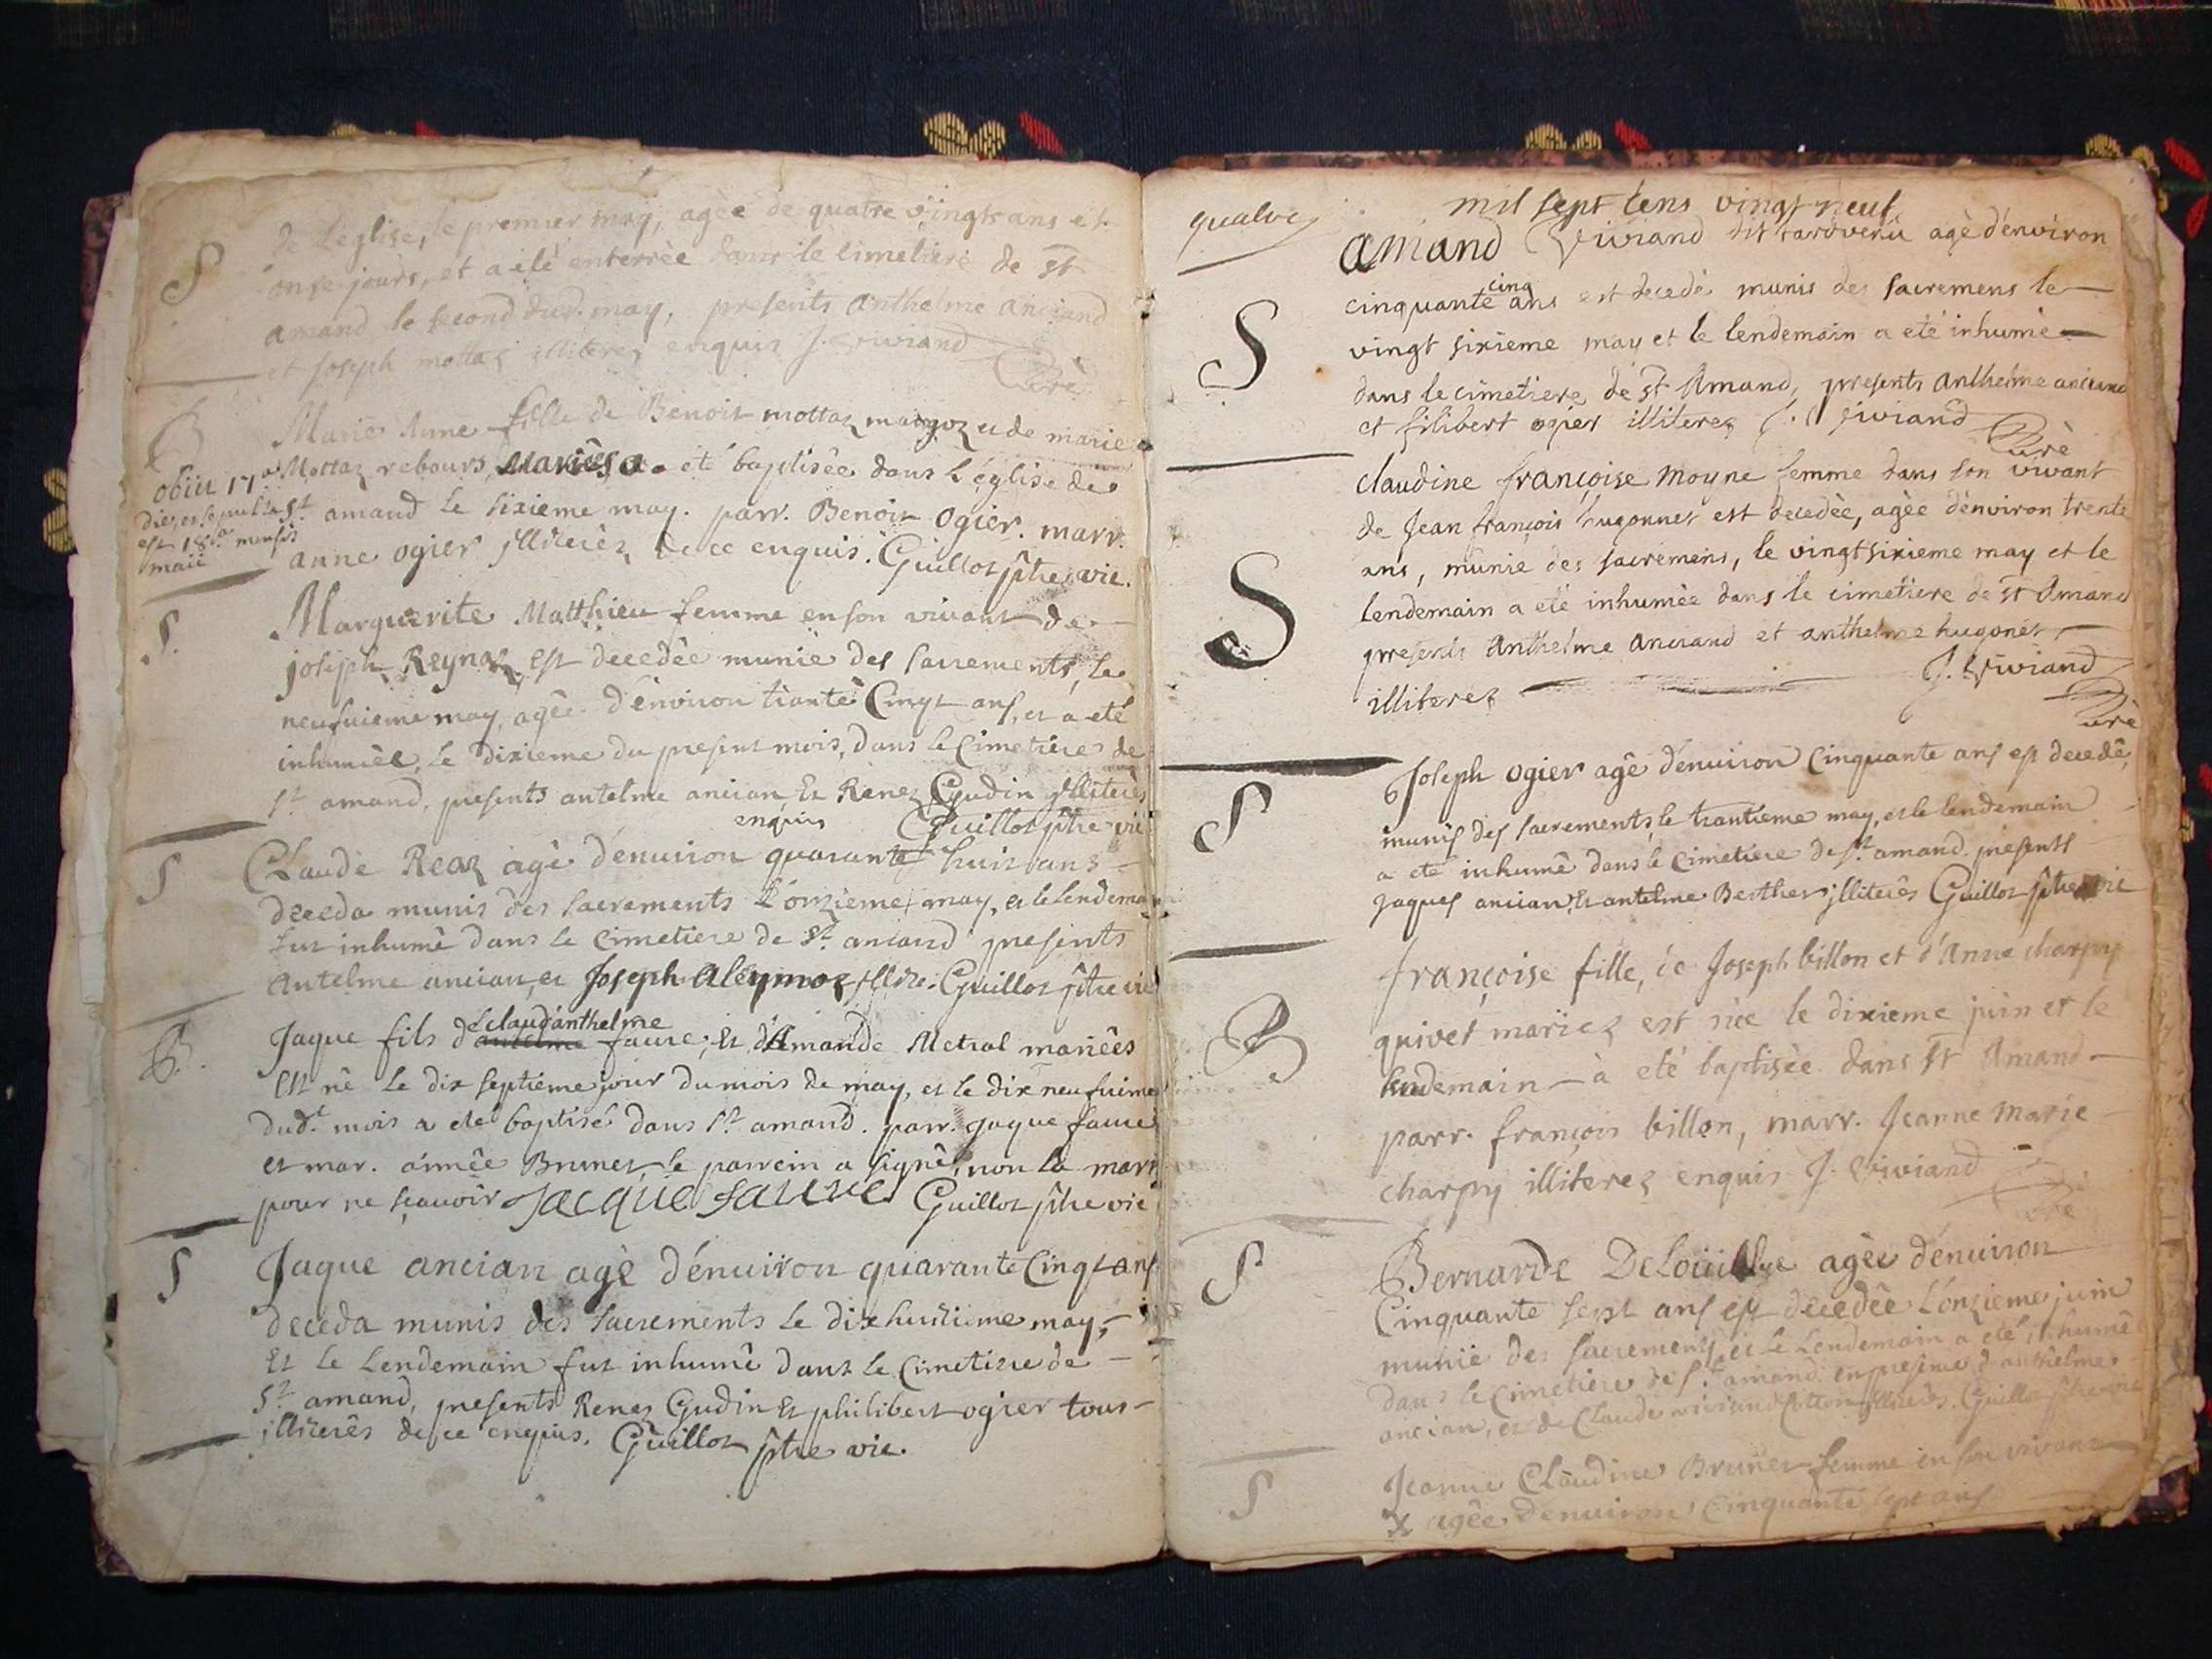 S
de L'églisé, le premier may, agèe de quatre vingts ans et
onse jours, et a eté enterrèe dans le cimetiere de st
amand le second dud. may, presents anthelme anciand
et Joseph mottaz illiterez enquis J. Viviand
Curè
B
Marie Anne fille de Benoit mottaz margoz et de marie
Mottaz rebours Mariês a eté baptisée dans L'église de
St. amand le sixieme may. parr. Benoit Ogier. marr.
anne ogier jlliterês de ce enquis. Guillot ptre vic.
obiit 17a
die, et sepulta
est 18a. mensis
maii
S.
Marguerite Matthieu femme en son vivant de
joseph Reynaz est decedêe munie des sacrements, le
neufuieme may, agêe d'énviron trante Cinqt ans, et a eté
inhumêe, le dixieme du present mois, dans le Cimetiere de
St. amand, presents antelme ancian Et Renez Gudin jlliterês
enquis Guillot ptre vic
S
Claude Reaz agè d'énuiron quarante huit ans
deceda munis des sacrements L'onzieme may, et le lendemain
fut inhumê dans le cimetiere de St. amand presents
Antelme ancian, et Joseph Aleymoz jllite. Guillot ptre vic
B.
Claud'anthelme
Jaque fils d'antelme faure, Et d'Amande Metral mariêes
Est nê Le dix septiéme jour du mois de may, et le dix neufuime
dud.t mois a eté baptisé dans St. amand. parr. Jaque faure
et mar. aimêe Brunet, le parrein a signê, non la marr.
pour ne sçauoir Jacque faure Guillot ptre vic
S
Jaque ancian agè d'énuiron quarante Cinqt ans
deceda munis des sacrements le dixhuitieme may,
Et le Lendemain fut inhumê dans le Cimetiere de
St. amand, presents Renez Gudin Et philibert ogier tous
jlliterês de ce enquis. Guillot ptre vic.
mil sept cens vingt neuf
Amand Viviand dit agè d'environ
cinq
cinquante ans est decedè munis des sacremens le
vingt sixieme may et le lendemain a eté inhumè
dans le cimetiere de st Amand, presents anthelme anciand
et filibert ogier illiterez J. Viviand
Curè
S
claudine françoise moyne femme dans son vivant
de Jean françois hugonnet est decedèe, agèe d'environ trente
ans, munie des sacremens, le vingtsixieme may et le
lendemain a eté inhumèe dans le cimetiere de st Amand
presents Anthelme Anciand et anthelme hugonet
illiterez J. Viviand
Curè
S
Joseph ogier agê d'énuiron Cinquante ans est decedê,
munis des sacrements, le trantieme may, et le lendemain
a eté inhumê dans le Cimetiere de St. amand presents
Jaques ancian, Et antelme Berthet jlliterês Guillot ptre vic
S
françoise fille, de Joseph billon et d'Anne charpy
quivet mariez est née le dixieme juin et le
lendemain à eté baptisèe dans st Amand
parr. françois billon, marr. Jeanne Marie
charpy illiterez enquis J. Viviand
Curè
B
Bernarde agêe d'énuiron
Cinquante sept ans est decedêe L'onzieme juin
munie des sacrements, et le Lendemain a eté inhumêe
dans le Cimetiere de St. amand en presence d'anthelme
ancian, et de Claude viviand jlliterês. Guillot ptre vic
S
Jeanne Claudine Brunet femme en son vivant
x agêe d'énuiron Cinquante sept ans
S